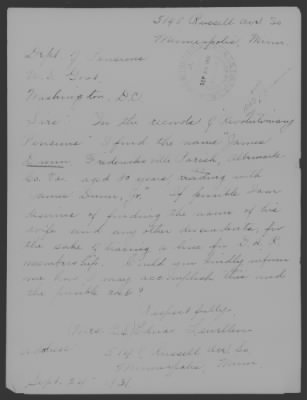 Russell Ave So
Minneapolis, Minn.
Dept. of Pensions
U.S. Govt.
Washington, D.C.
Sirs: In the records of "Revolutionary
Pensions" I find the name "James
Parish, Albemarle
Co. Va. aged 80 years residing with
Jr." If possible I am
desirous of finding the name of his
wife and any other descendants, for
the sake of having a line for D.A.R.
membership. Could you kindly inform
me how I may accomplish this and
the possible cost?
Respectfully,
Mrs.
Address
Russell Ave So
Minneapolis, Minn.
Sept. 24 1931.